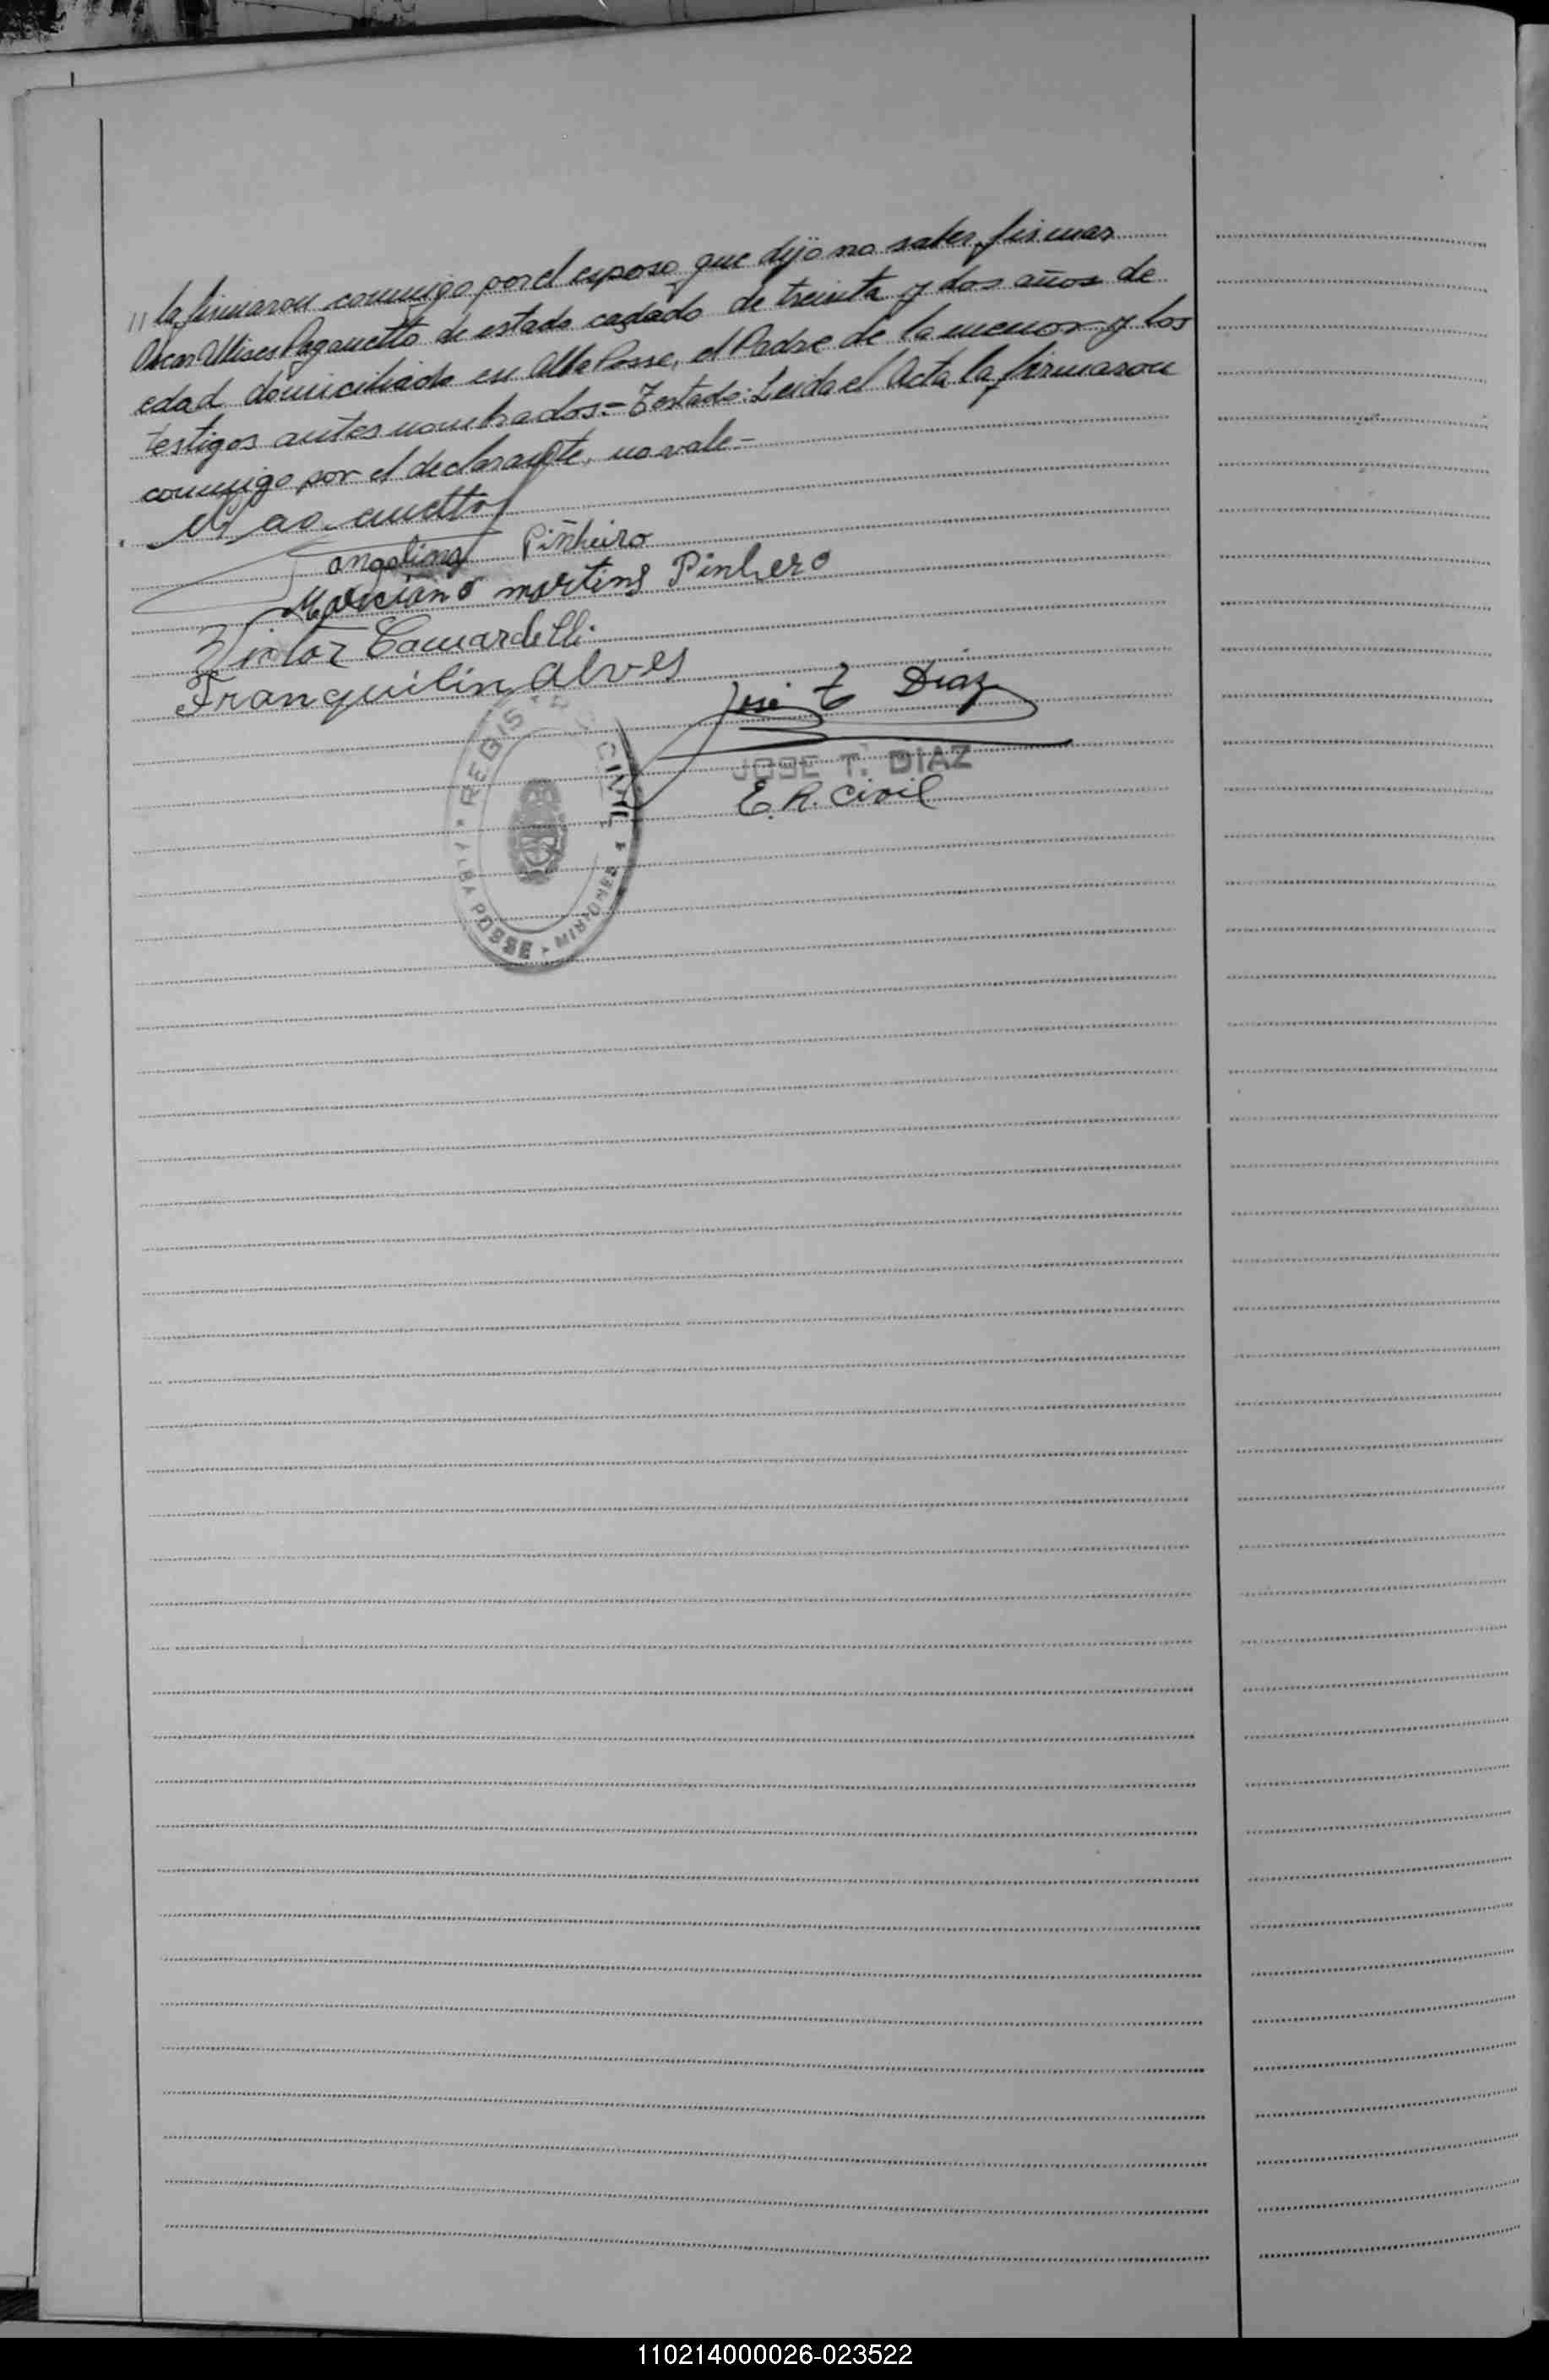 " la firmaron conmigo por el esposo que dijo no saber firmar
Oscar Ulises Paganetto de estado casado de treinta y dos años de
edad domiciliado en Alba Posse, el Padre de la menor y los
testigos antes nombrados.= Testado: Leida el Acta la firmaron
conmigo por el declarante, no vale-
angelina Piñheiro
Marciano martins Pinhero
Victor Camardelli
Tranquilin alves
José T Diaz
JOSE T. DIAZ
E. R. Civil
REGISTRO CIVIL * ALBA POSSE * MISIONES *
110214000026-023522